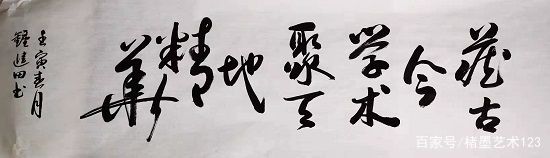 藏古
今
学术
聚天
地
精
華
壬寅春月
进田书
百家号/楮墨艺术123